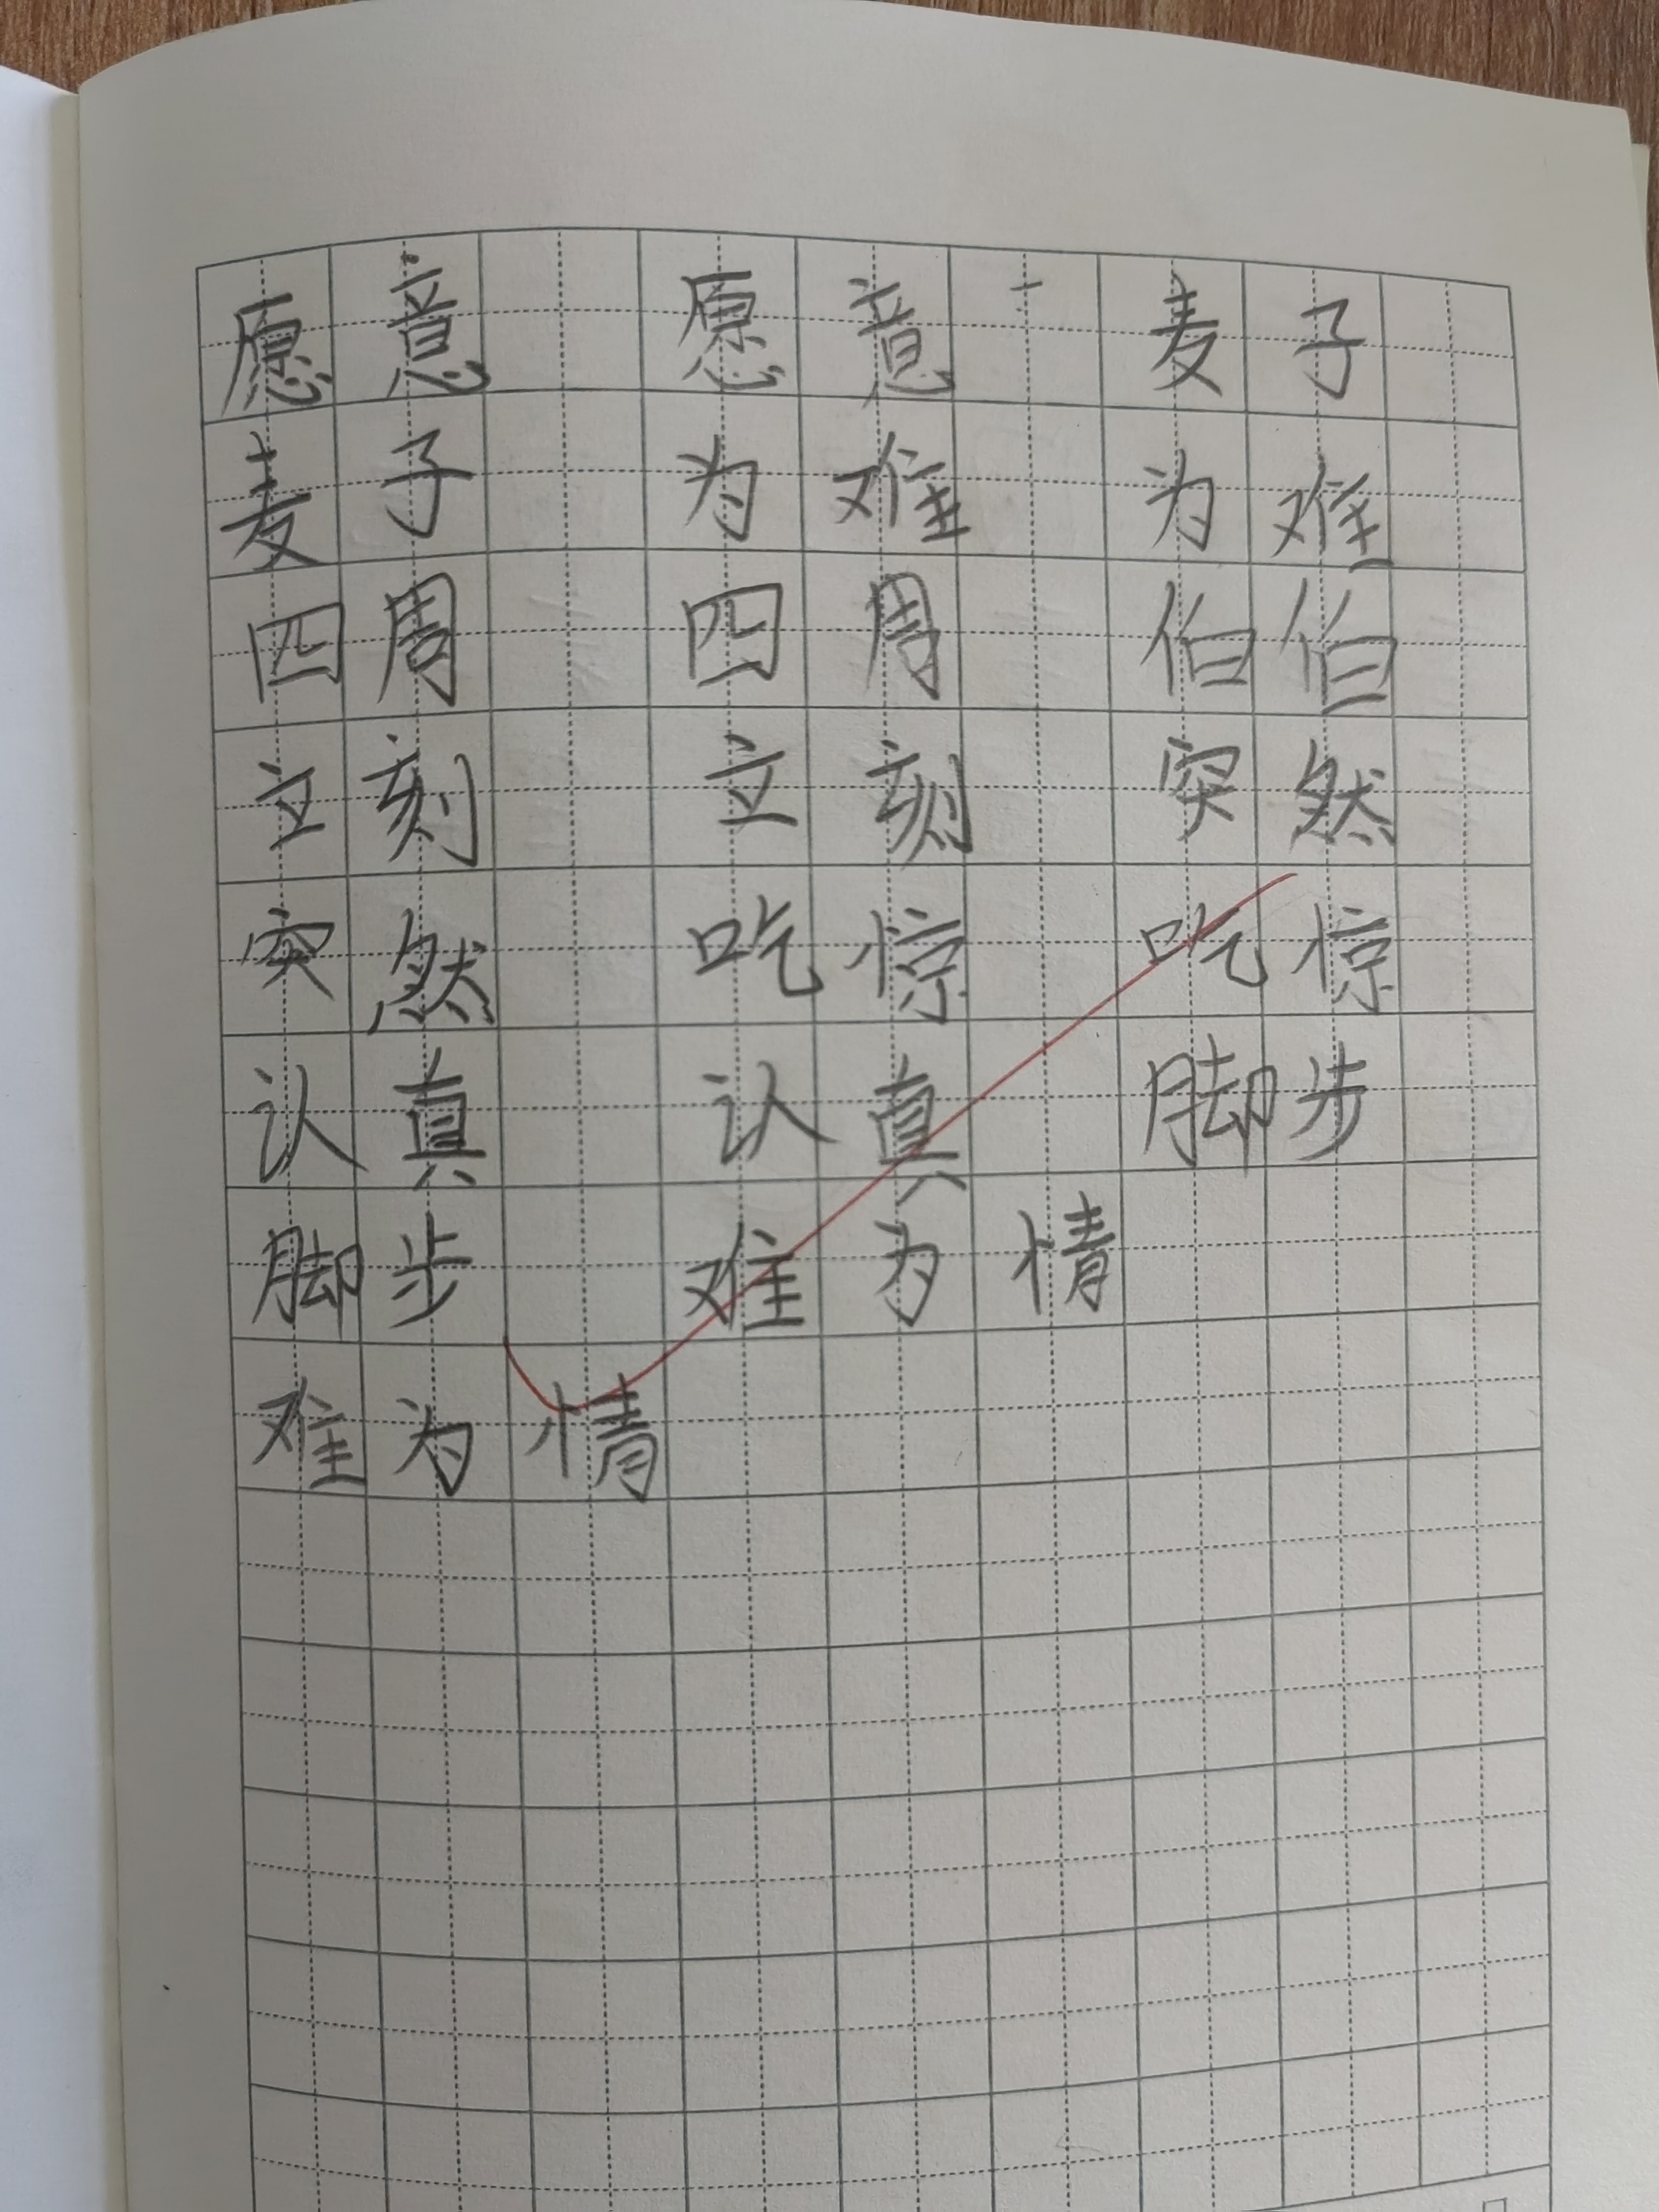 愿意 愿意 麦子
麦子 为难 为难
四周 四周 伯伯
立刻 立刻 突然
突然 吃惊 吃惊
认真 认真 脚步
脚步 难为情
难为情